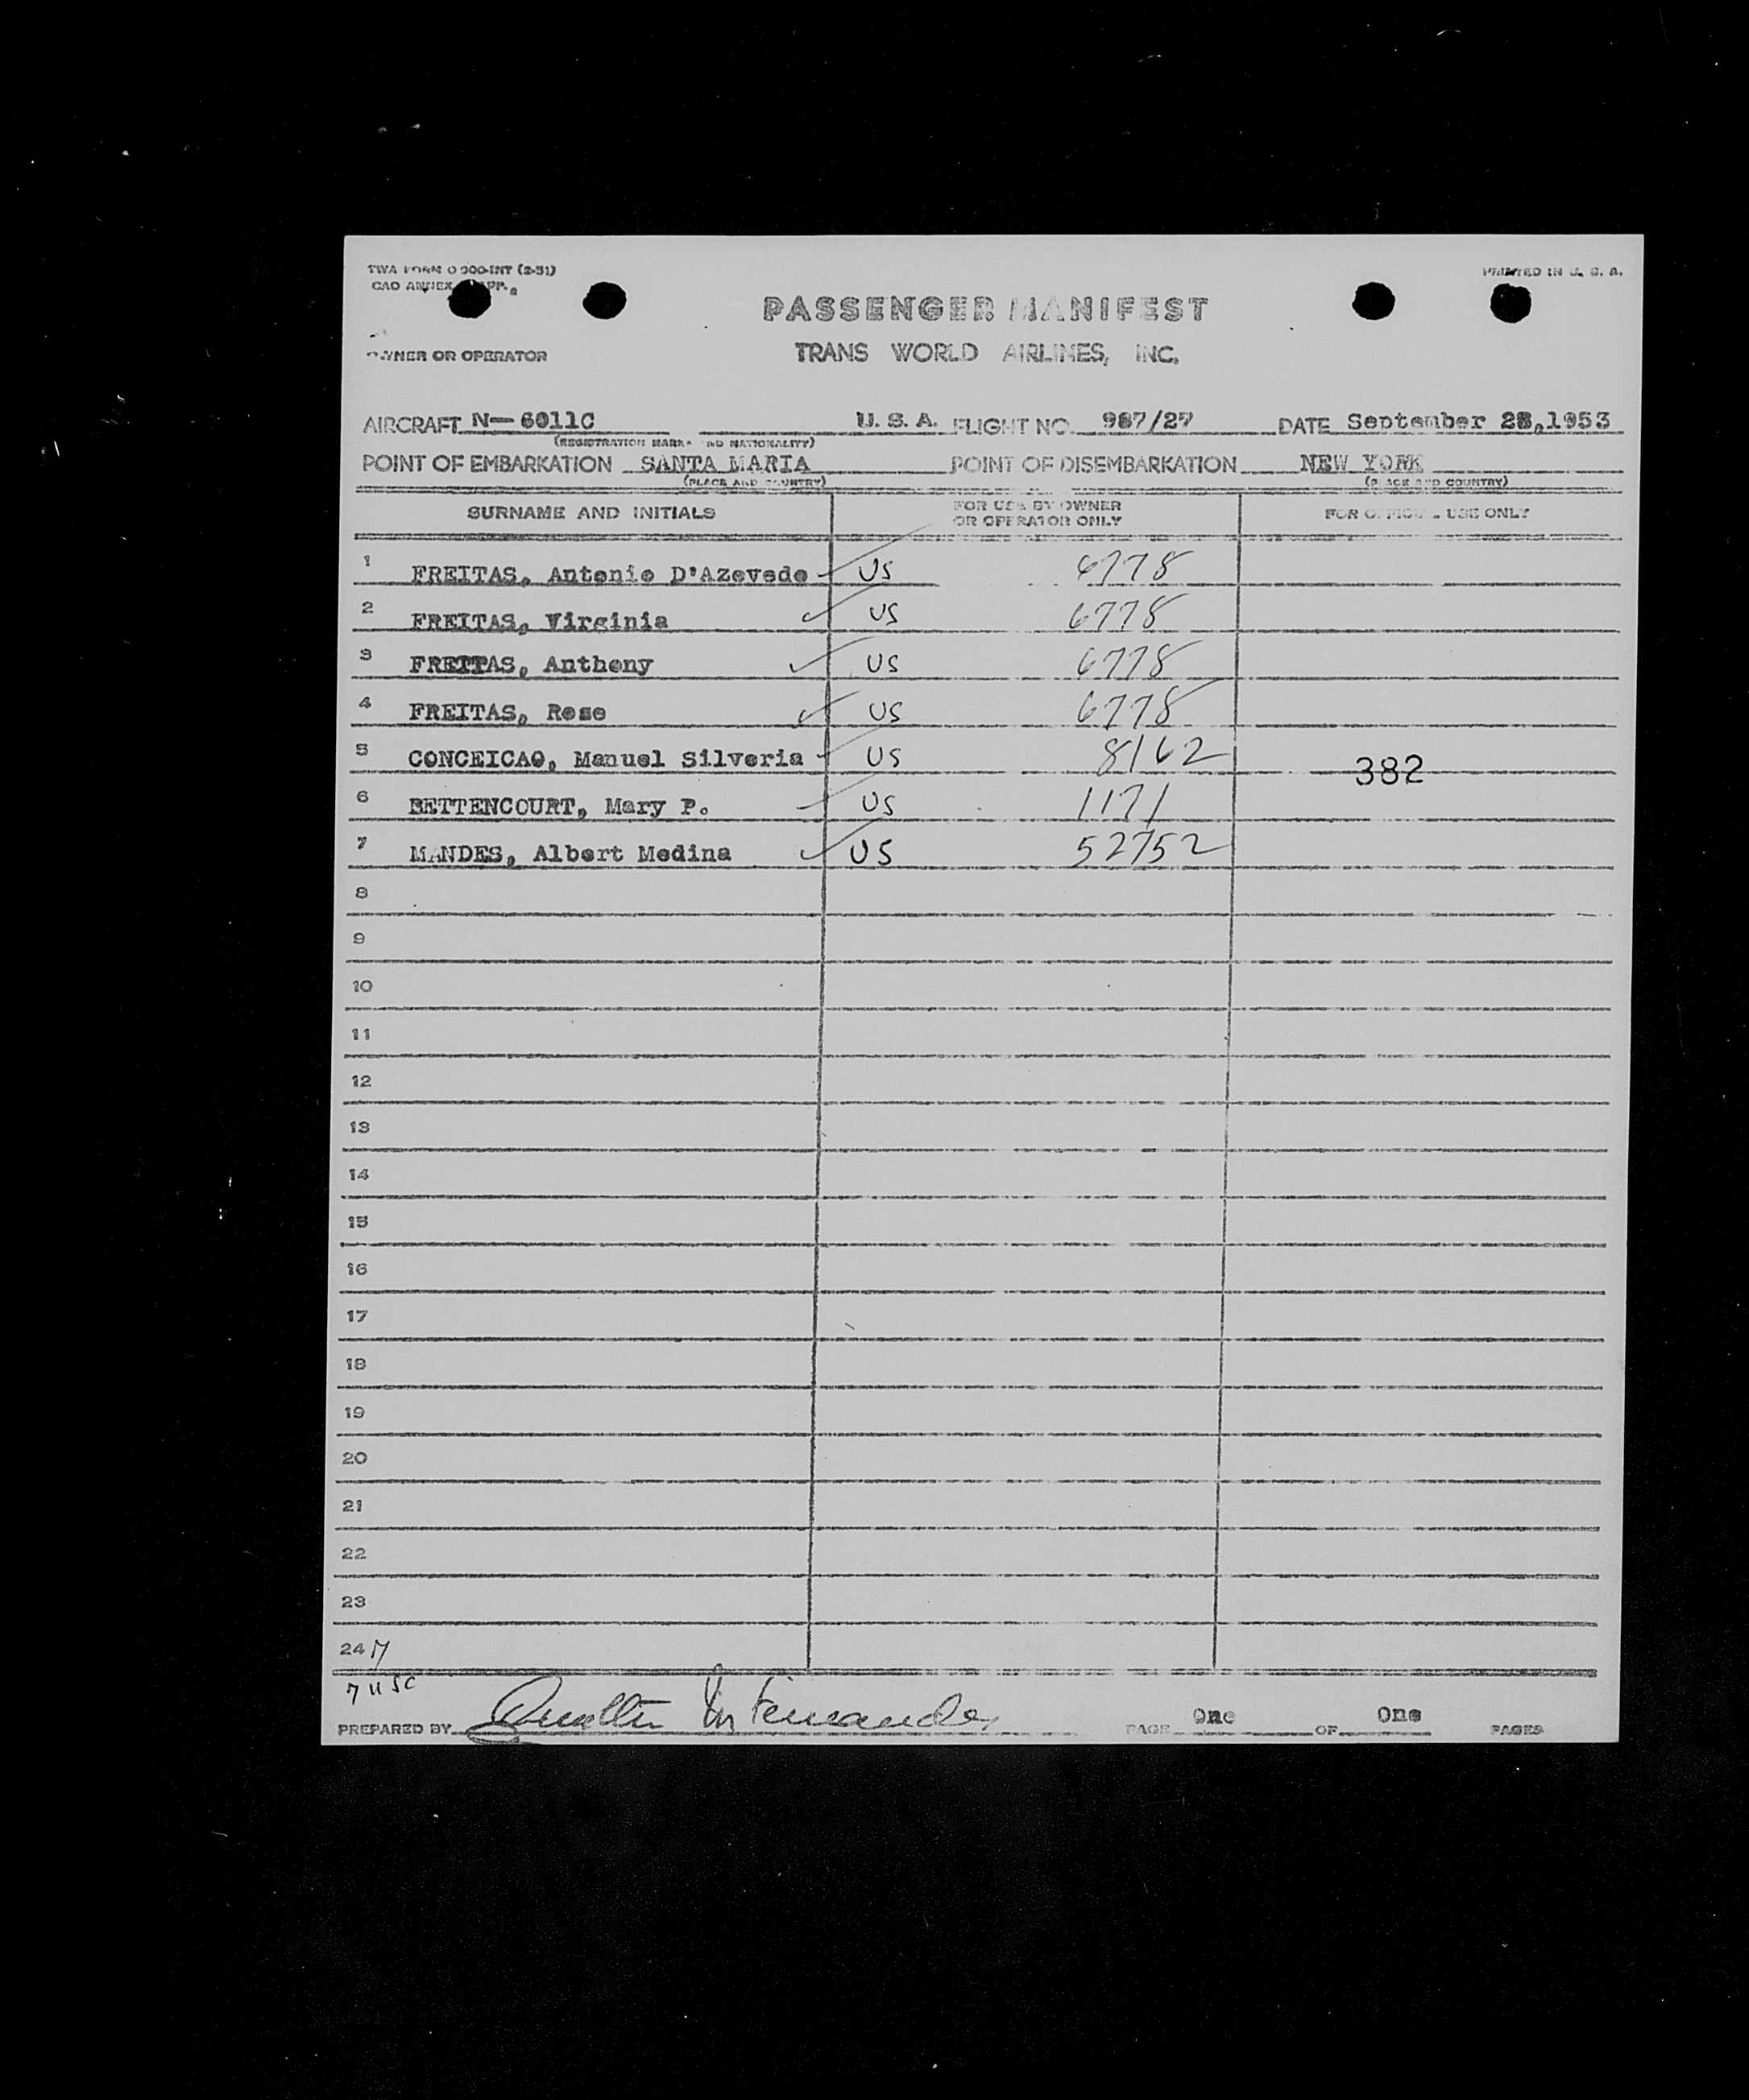 TWA FORM O 300-INT (2-51)
CAO ANNEX APP.
PRINTED IN U. S. A.
PASSENGER MANIFEST
OWNER OR OPERATOR
TRANS WORLD AIRLINES, INC.
AIRCRAFT N-6011C U. S. A. FLIGHT NO. 967/27 DATE September 28, 1953
(REGISTRATION MARKS AND NATIONALITY)
POINT OF EMBARKATION SANTA MARIA POINT OF DISEMBARKATION NEW YORK
(PLACE AND COUNTRY) (PLACE AND COUNTRY)
SURNAME AND INITIALS FOR USE BY OWNER OR OPERATOR ONLY FOR OFFICIAL USE ONLY
1 FREITAS, Antonio D'Azevedo US 6778
2 FREITAS, Virginia US 6778
3 FREITAS, Anthony US 6778
4 FREITAS, Rose US 6778
5 CONCEICAO, Manuel Silveria US 8162 382
6 BETTENCOURT, Mary P. US 1171
7 MANDES, Albert Medina US 52752
8
9
10
11
12
13
14
15
16
17
18
19
20
21
22
23
24 7
7 USC
PREPARED BY PAGE One OF One PAGES